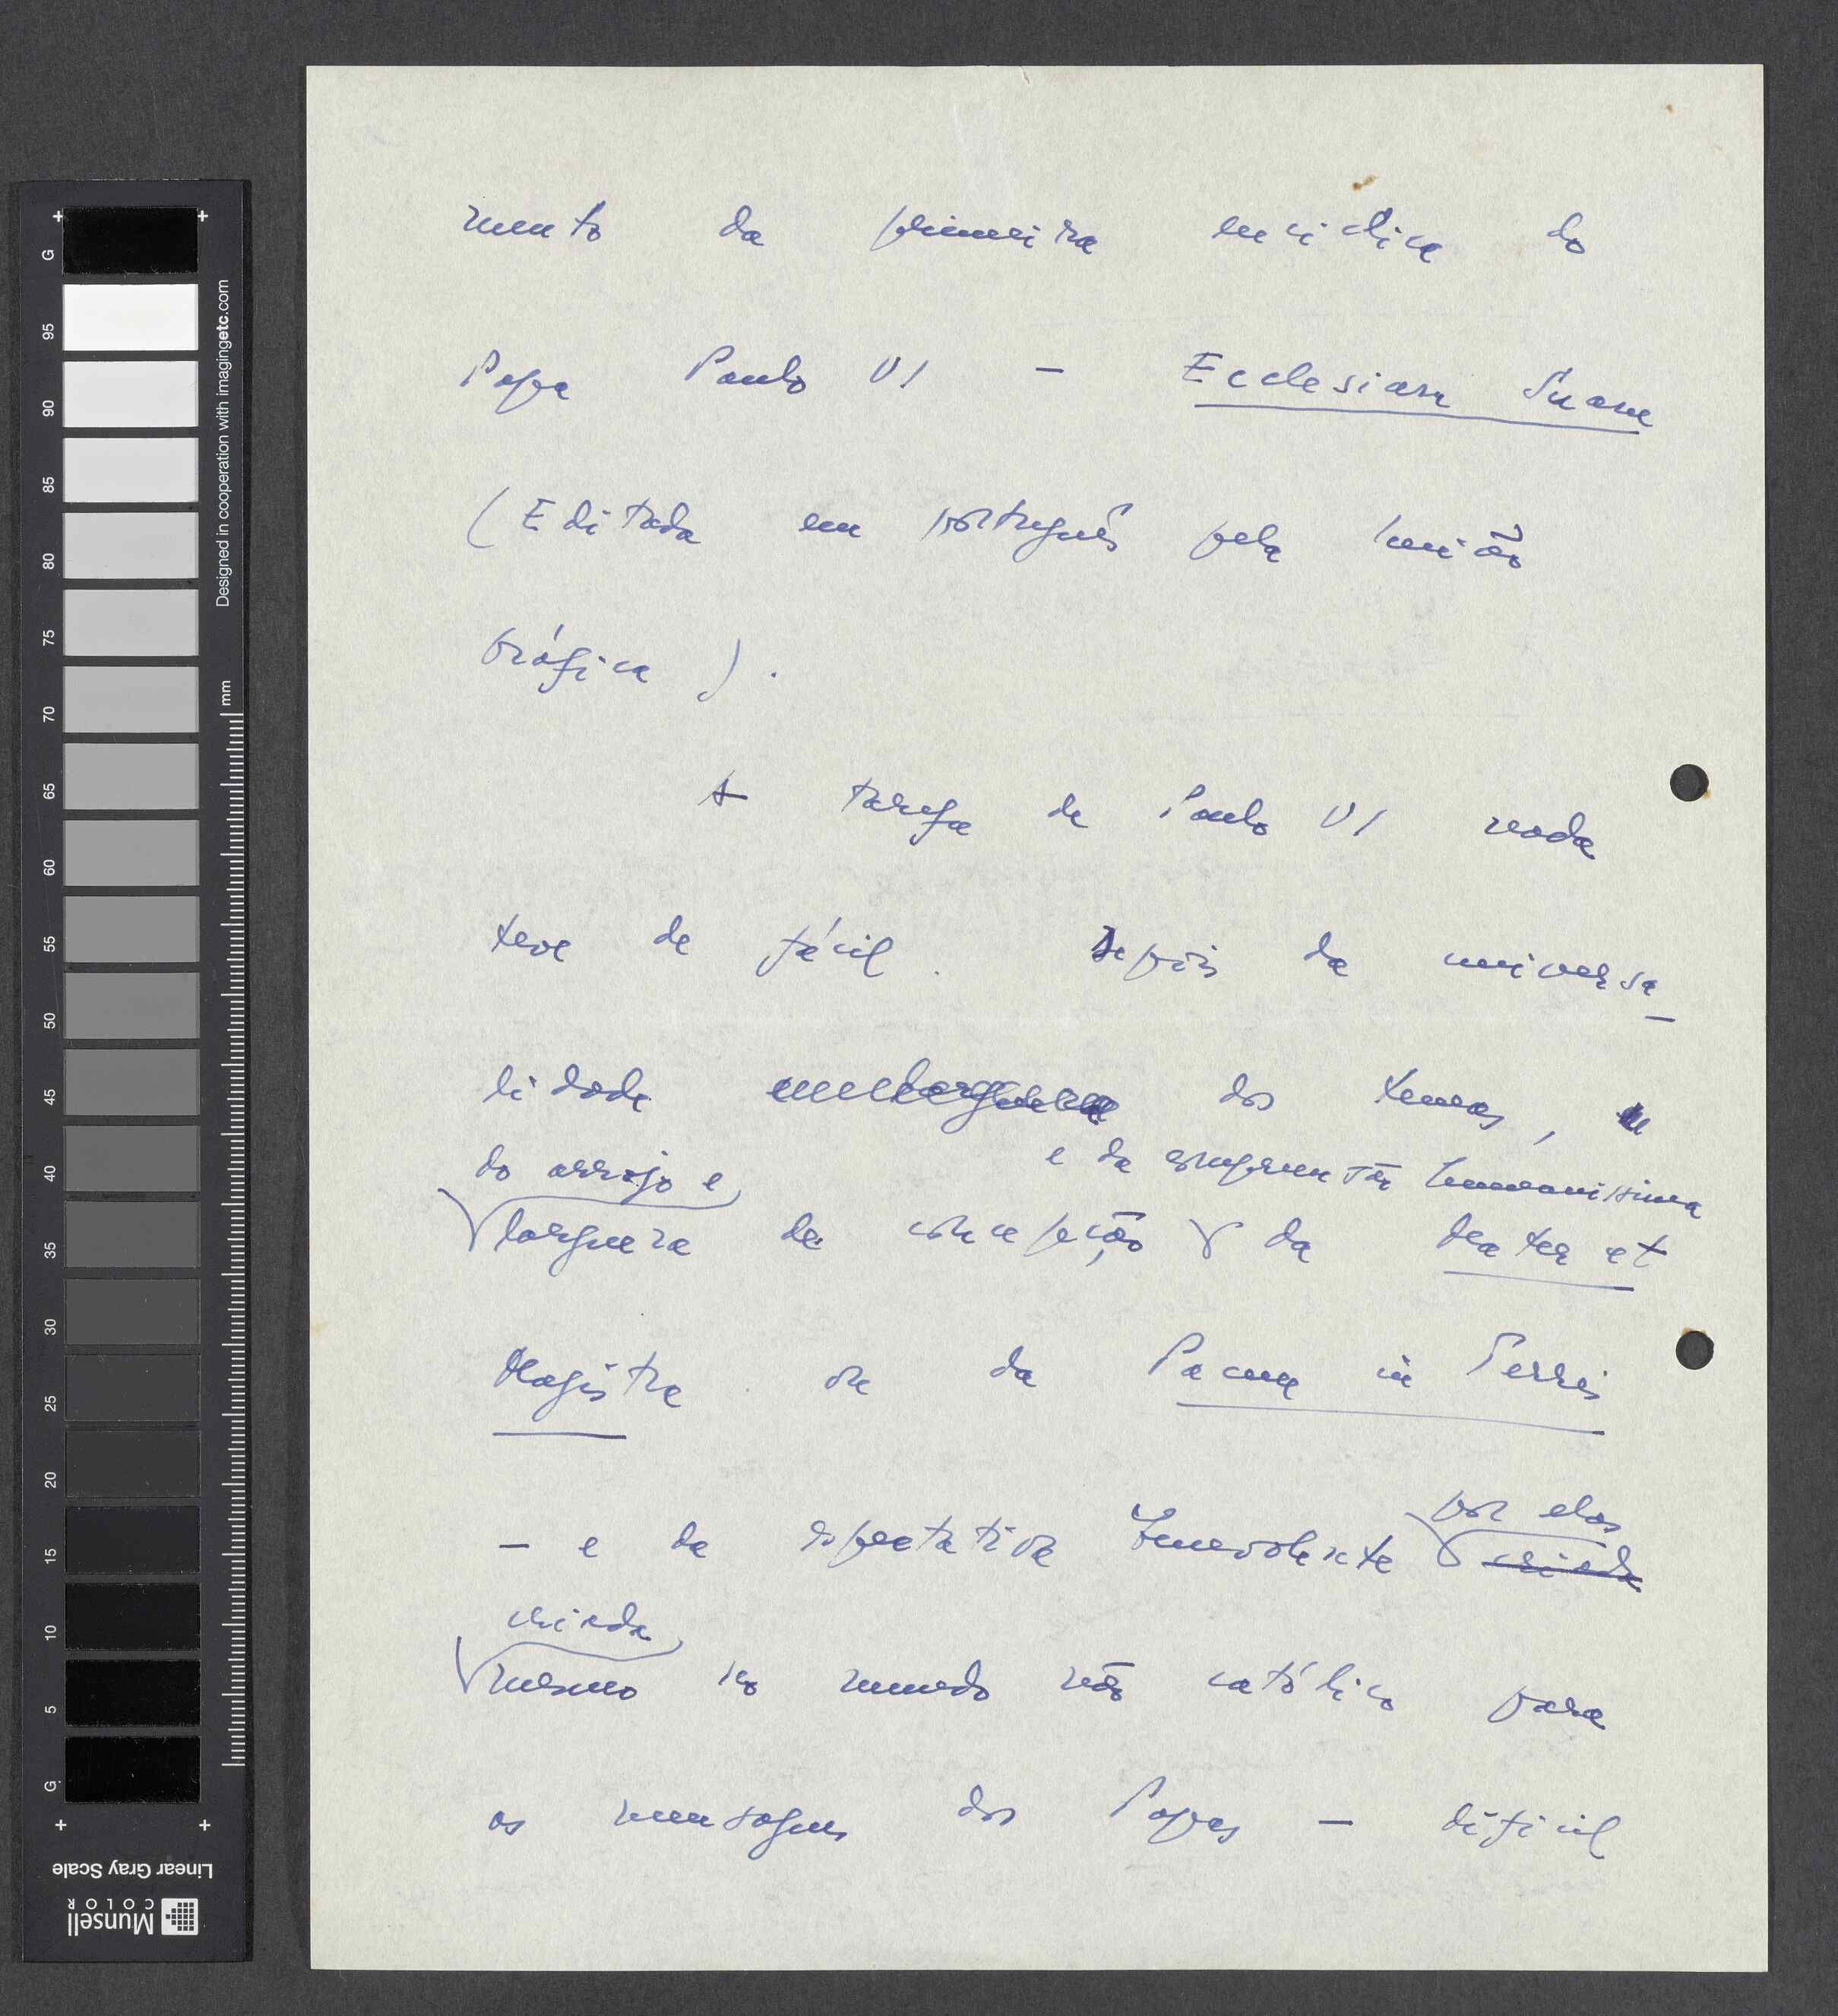 mento da primeira encíclica do
Papa Paulo VI — Ecclesiam Suam
(Editada em português pela União
Gráfica).
A tarefa de Paulo VI nada
teve de fácil. Depois da universa-
lidade dos temas,
do arrojo e
e da compreensão humaníssima
largueza de concepção da Mater et
Magistra ou da Pacem in Terris
— e da expectativa benevolente
por elas
criada
criada
mesmo no mundo não católico para
as mensagens dos Papas — difícil
G 95 90 85 80 75 70 65 60 55 50 45 40 35 30 25 20 15 10 5 G
Designed in cooperation with imagingetc.com
mm
Linear Gray Scale
Munsell
COLOR